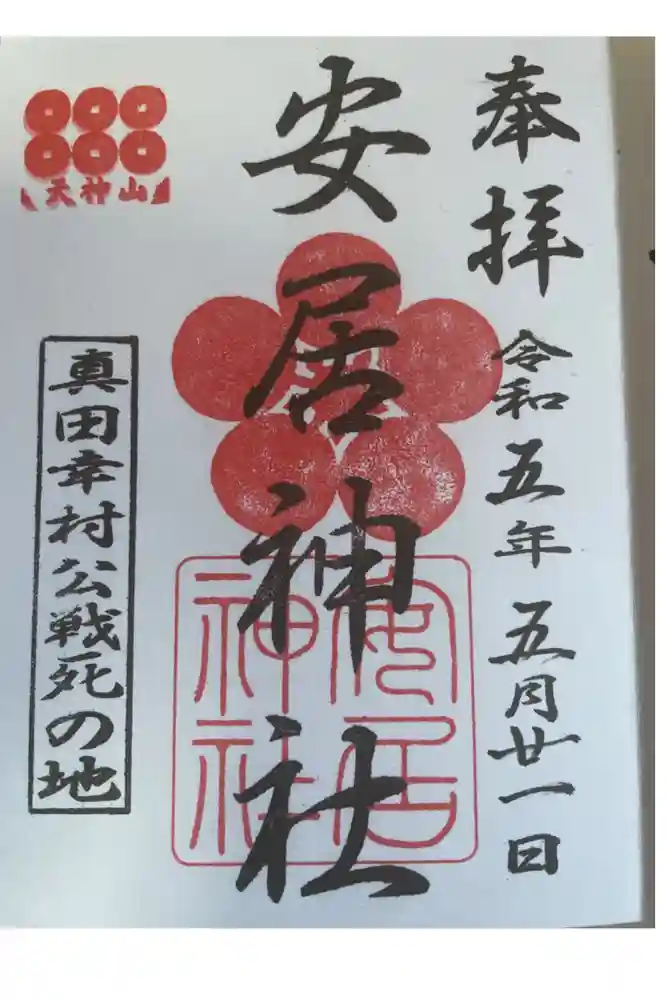 奉拝
令和五年 五月廿一日
安居神社
安居
神社
天神山
真田幸村公戦死の地